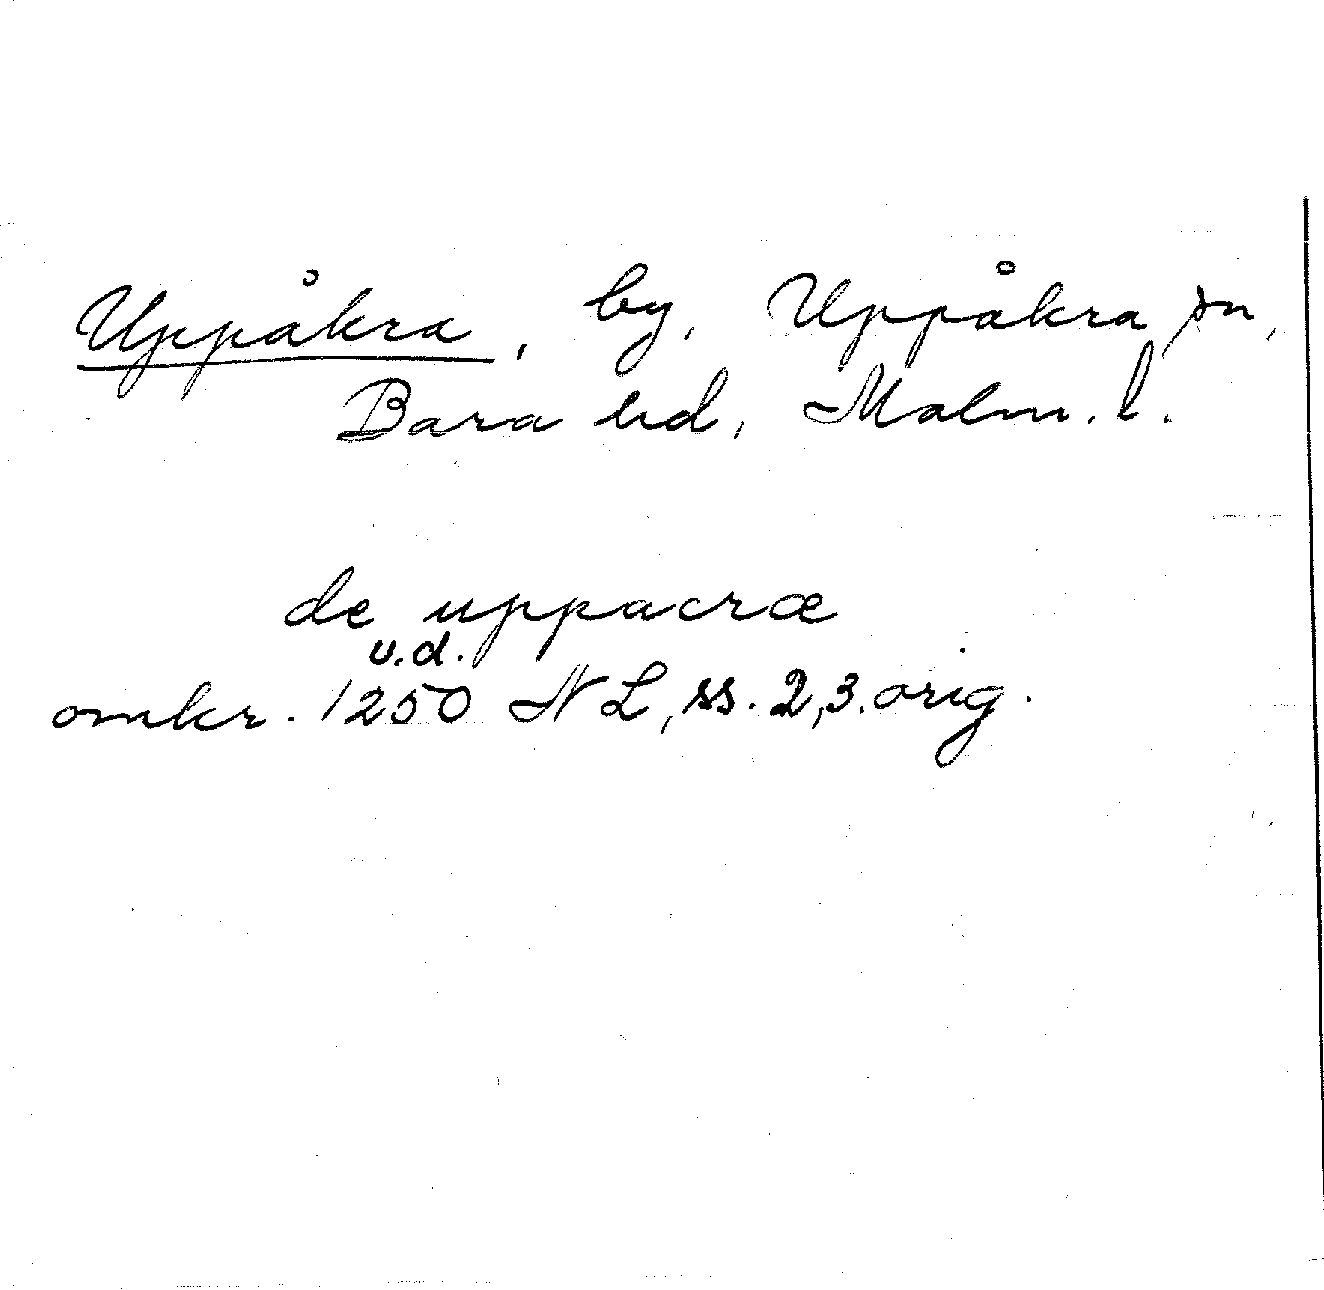 Uppåkra, by, Uppåkra sn,
Bara hd, Malm. l.
de uppacræ
u.d.
omkr. 1250 NL, ss. 2,3. orig.